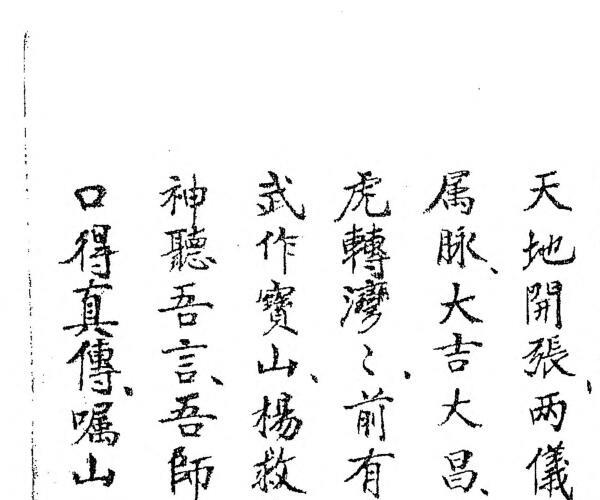 天地開張、两儀
属脉、大吉大昌、
虎轉灣〻、前有
武作寶山、楊救
神聽吾言、吾師
口得真傳、嘱山